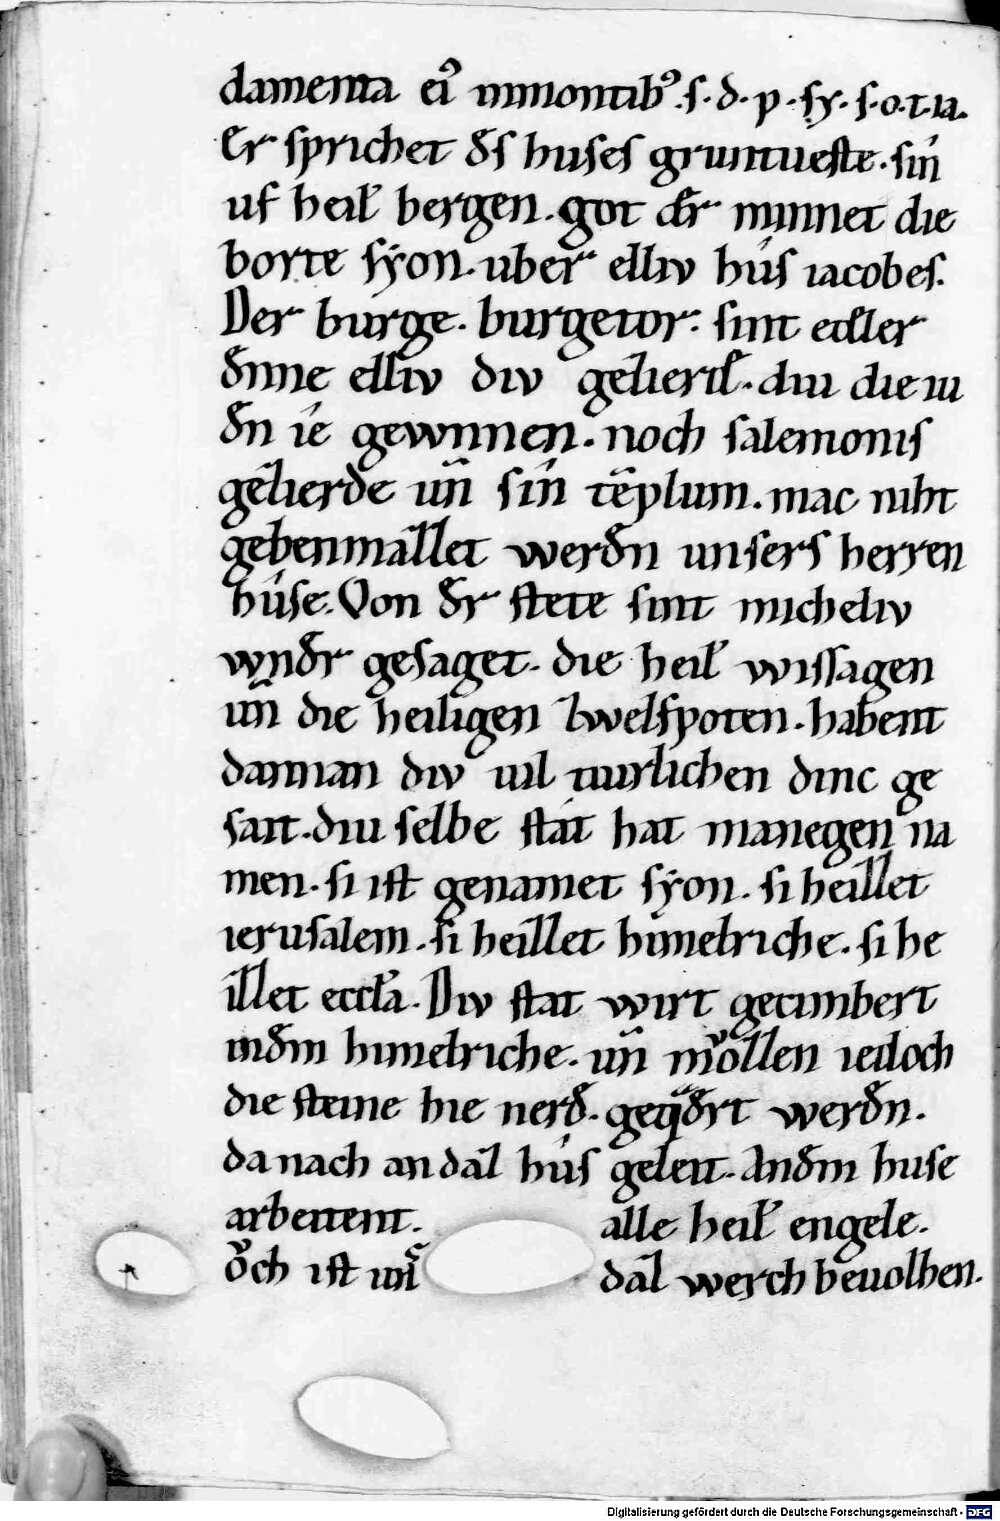 damenta ei᷒ inmontib᷒.s.d.p.sy.s.o.t.ia.
Er sprichet d̄s huses gruntueste.sin
uf heil̄ bergen.got dr̄ minnet die
borte sýon.uber elliv hús iacobes.
Der burge.burgetor.sint edeler
d̄nne elliv div gezierd̄.diu die iu
d̄n íe gewnnen.noch salemonis
gezierde un̄ sín tēplum.mac niht
gebenmazzet werd̄n unsers herren
húse.Von d̄r stete sint micheliv
wnd̄r gesaget.die heil̄ wissagen
un̄ die heiligen zwelfpoten.habent
dannan div uil turlichen dinc ge
sait.diu selbe stát hat manegen na
men.si ist genamet sýon.si heizzet
ierusalem.si heizzet himelriche.si he
izzet eccl̄a.Div stat wirt gecimbert
ind̄m himelriche.un̄ mᵛozzen iedoch
die steine hie nerd̄.geq̄d̄rt werd̄n.
da nach an daz hús geleit.And̄m huse
arbeitent. alle heil̄ engele.
ᵛoch ist un̄s daz werch beuolhen.
Digitalisierung gefördert durch die Deutsche Forschungsgemeinschaft - DFG